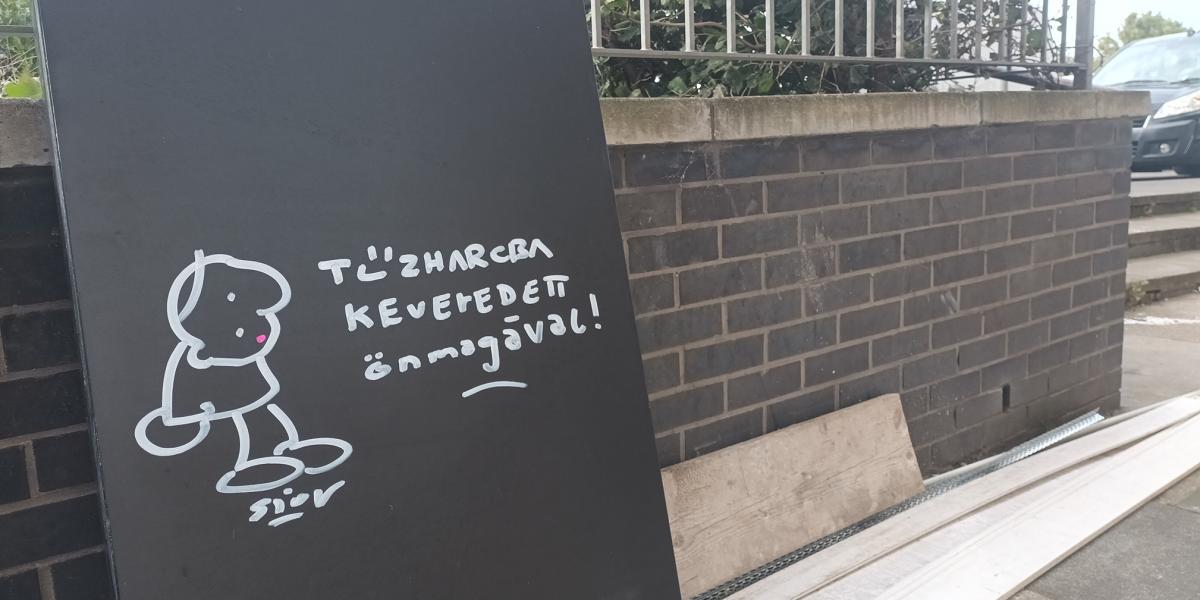 TŰZHARCBA
KEVEREDETT
önmagával!
SiOr